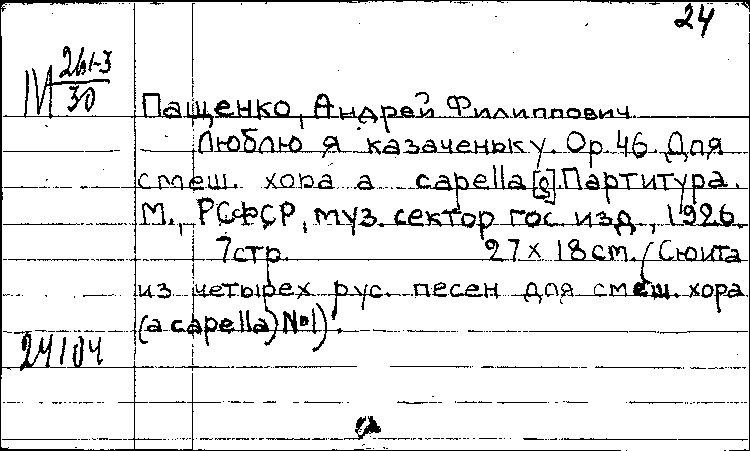 24
М 261-3
30
Пащенко, Андрей Филиппович
Люблю я казаченьку. Ор. 46. Для
смеш. хора a capella [g]. Партитура.
М., РСФСР, муз. сектор гос. изд., 1926.
7стр. 27 x 18 ст. (Сюита
из четырех рус. песен для смеш. хора
(a capella) №1).
24104